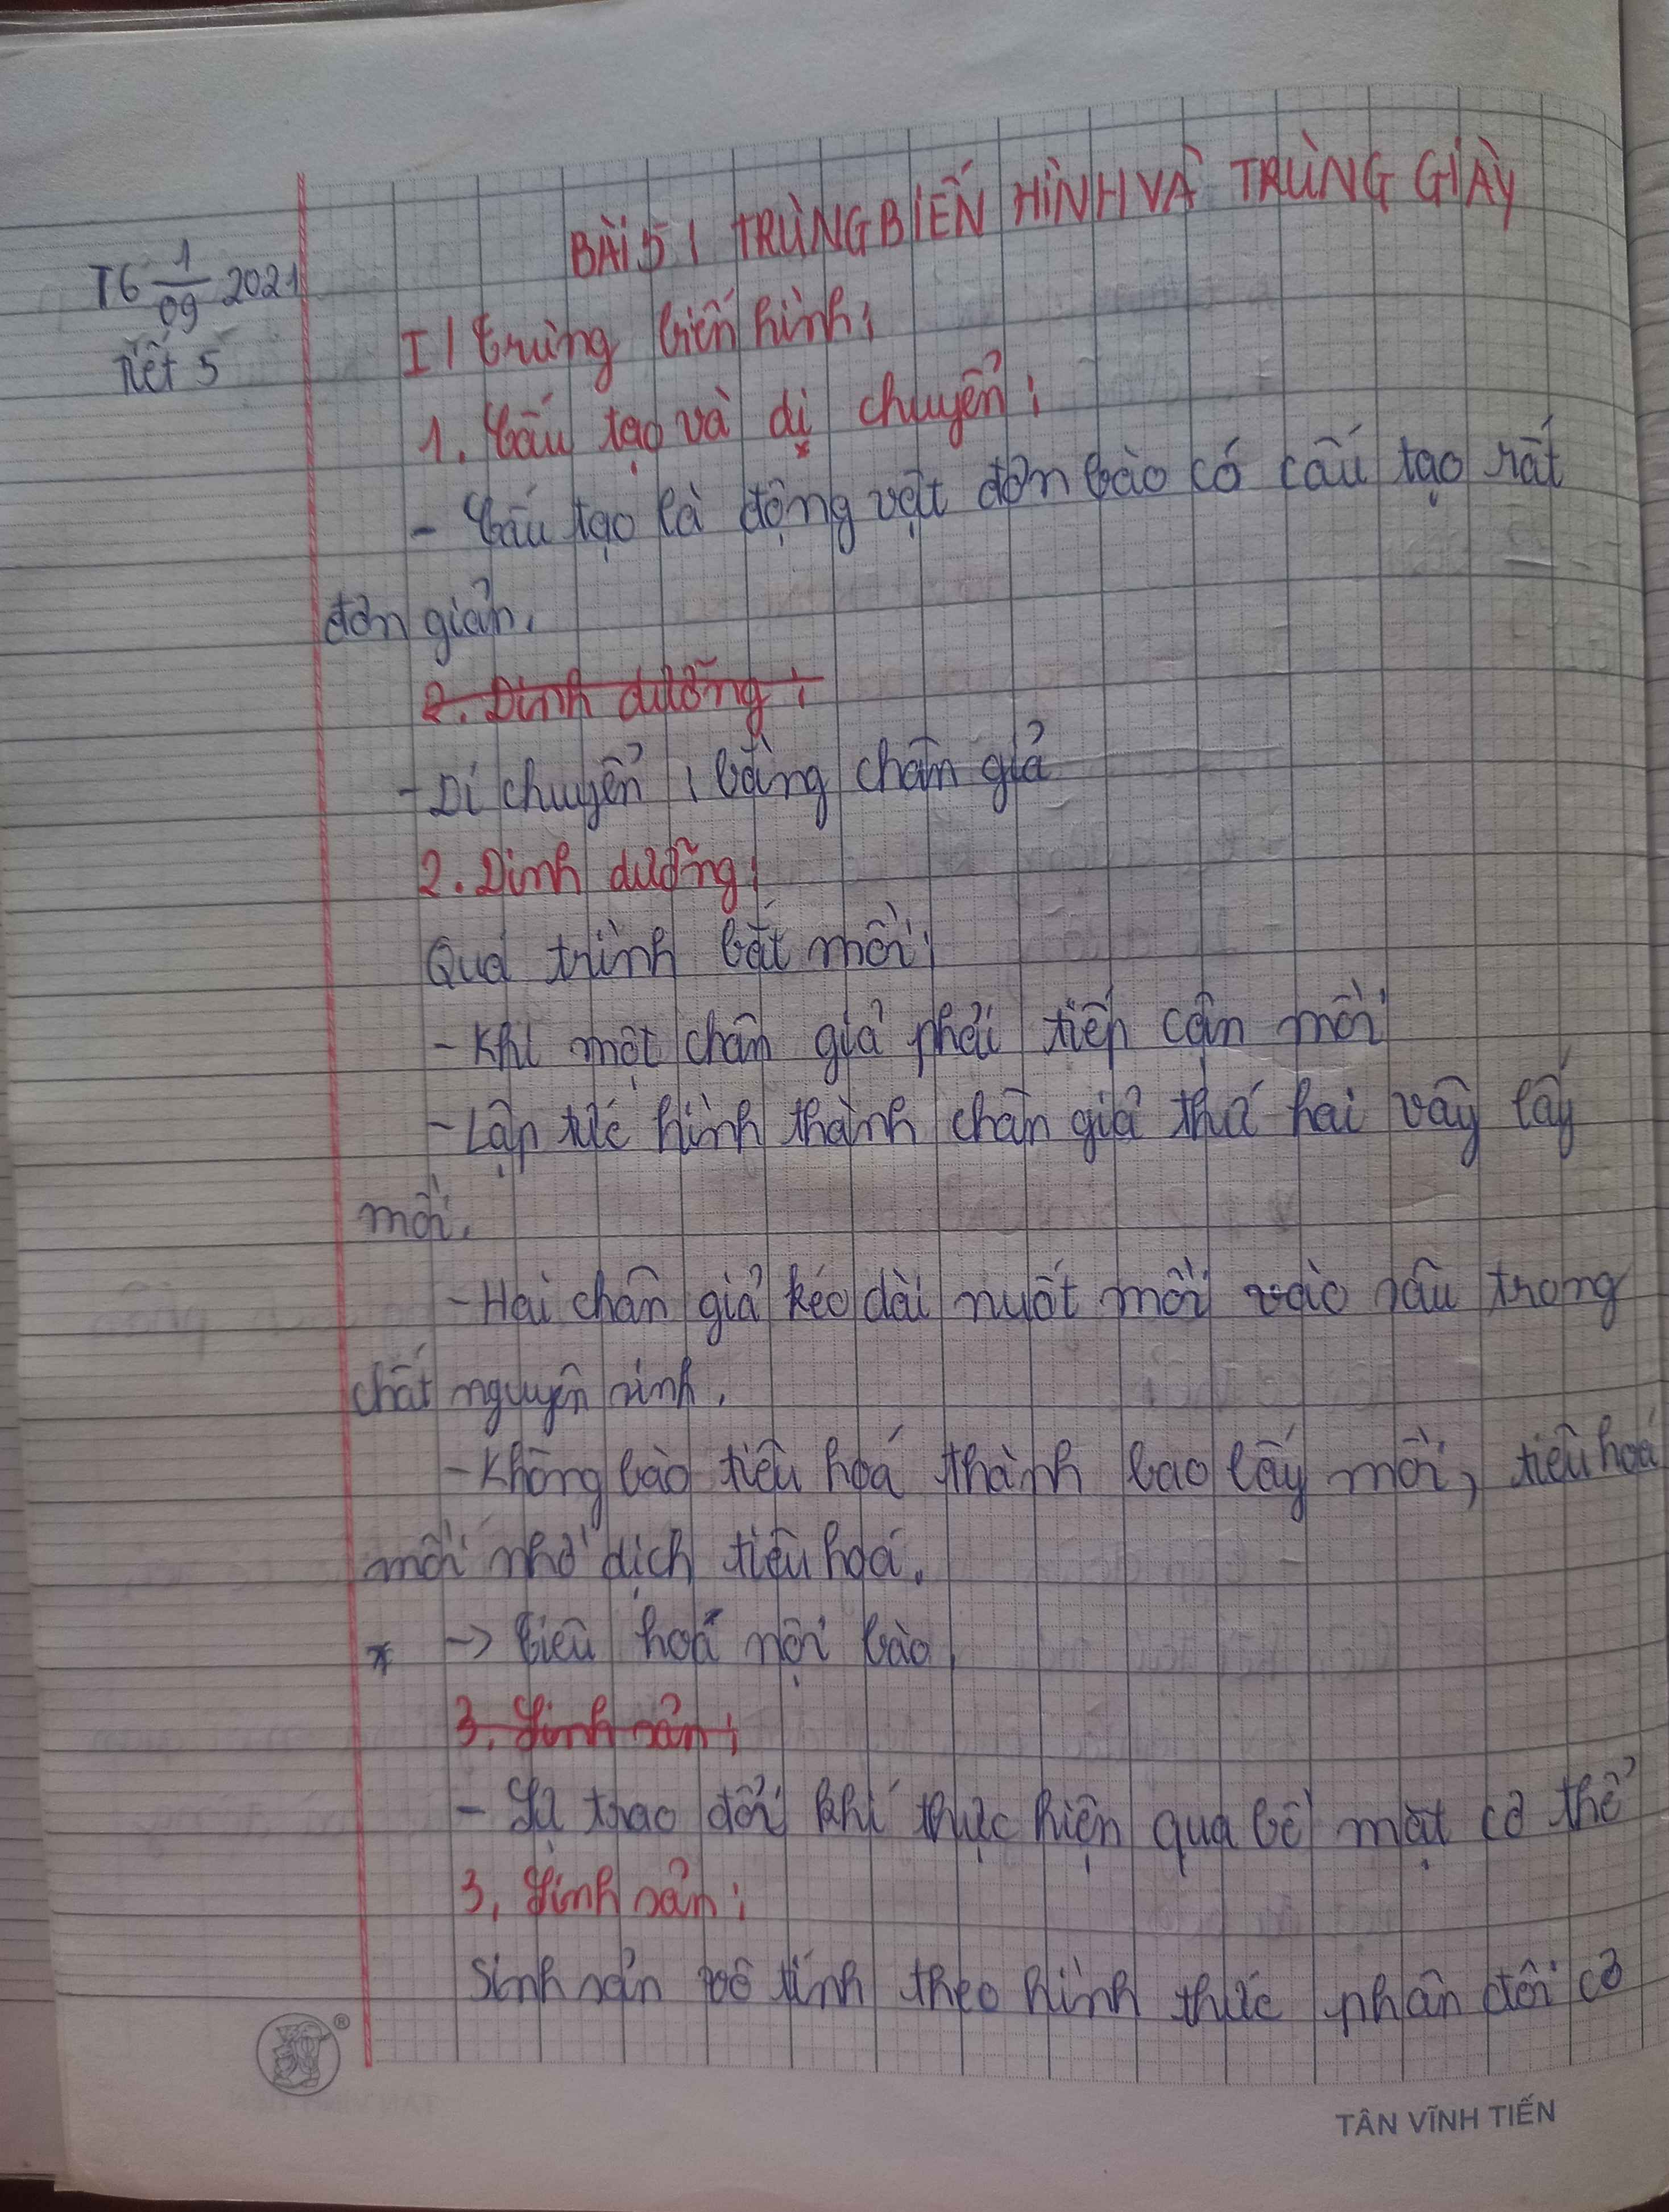 BÀI 5: TRÙNG BIẾN HÌNH VÀ TRÙNG GIÀY
T6 1/09 2021
Tiết 5
I/ Trùng biến hình:
1. Cấu tạo và di chuyển:
- Cấu tạo là động vật đơn bào có cấu tạo rất
đơn giản.
2. Dinh dưỡng:
- Di chuyển: bằng chân giả
2. Dinh dưỡng:
Quá trình bắt mồi:
- Khi một chân giả phải tiếp cận mồi
- Lập tức hình thành chân giả thứ hai vây lấy
mồi.
- Hai chân giả kéo dài nuốt mồi vào sâu trong
chất nguyên sinh.
- Không bào tiêu hoá thành bao lấy mồi, tiêu hoá
mồi nhờ dịch tiêu hoá.
* -> Tiêu hoá nội bào.
3. Sinh sản:
- Sự trao đổi khí thực hiện qua bề mặt cơ thể
3. Sinh sản:
Sinh sản vô tính theo hình thức phân đôi cơ
®
TÂN VĨNH TIẾN